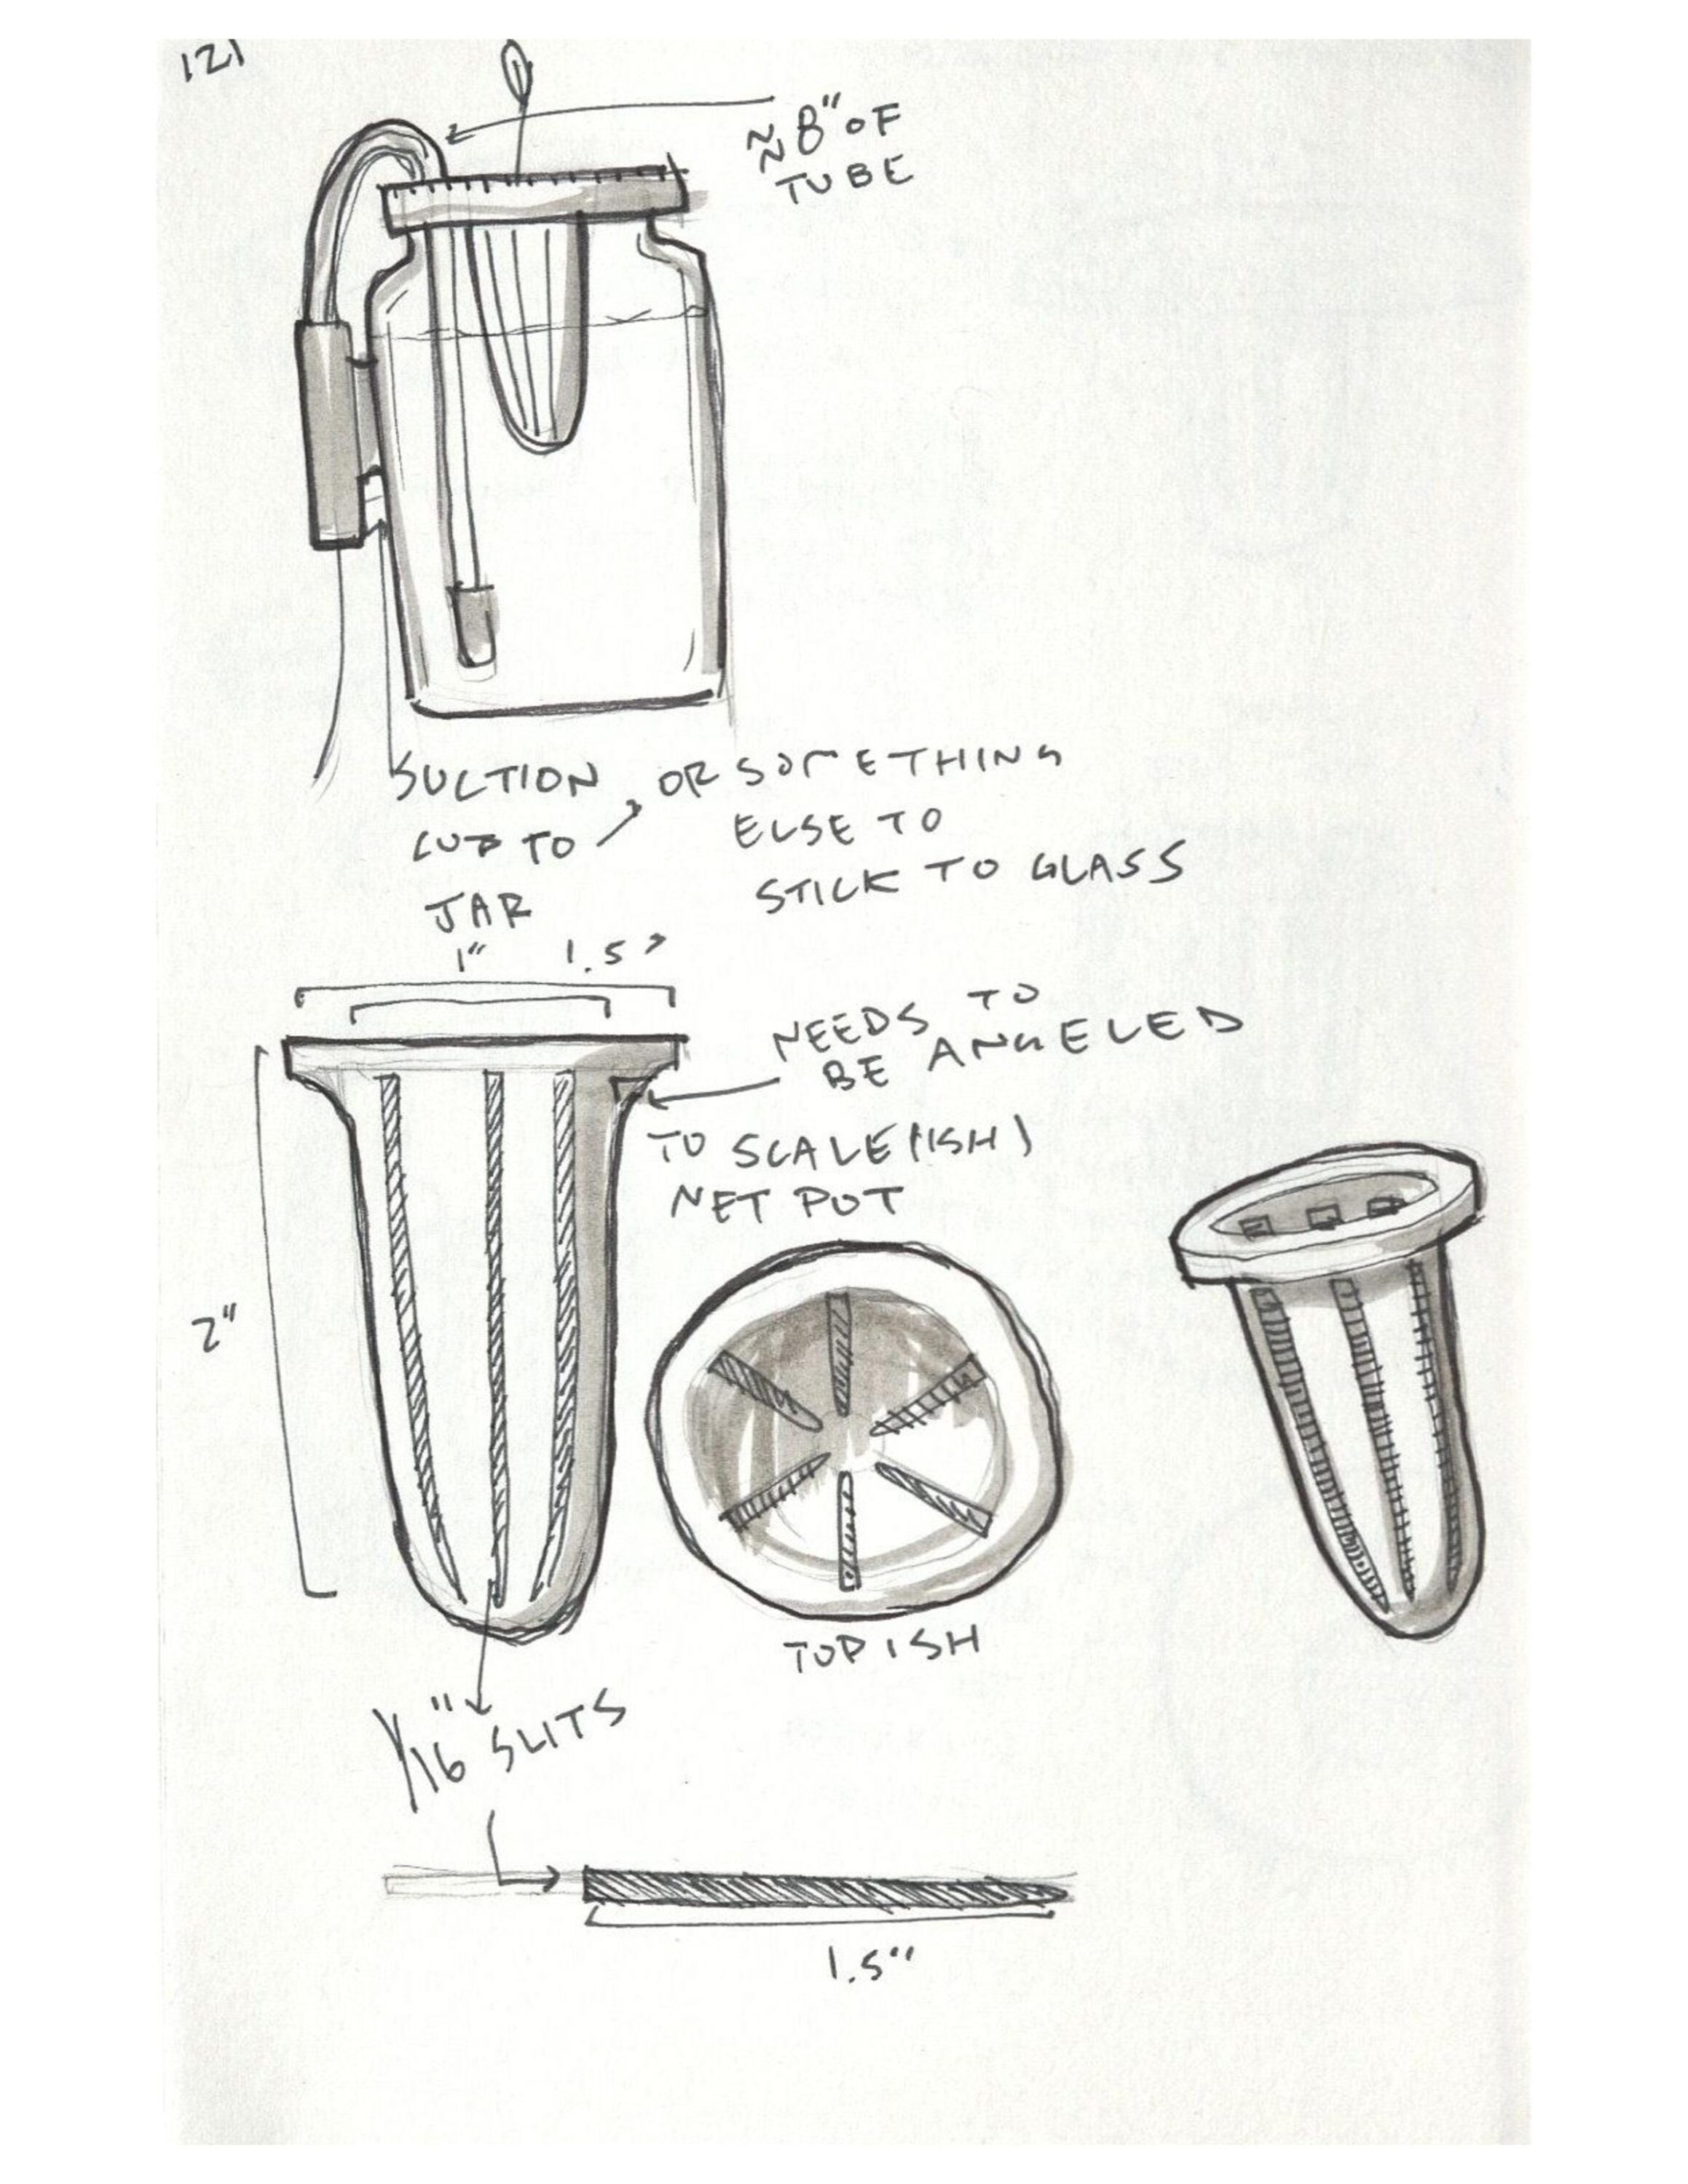 121
≈8" OF
TUBE
SUCTION, OR SOMETHING
CUP TO ELSE TO
JAR STICK TO GLASS
1" 1.5"
NEEDS TO
BE ANGELED
TO SCALE(ISH)
NET POT
2"
TOPISH
1/16" SLITS
1.5"